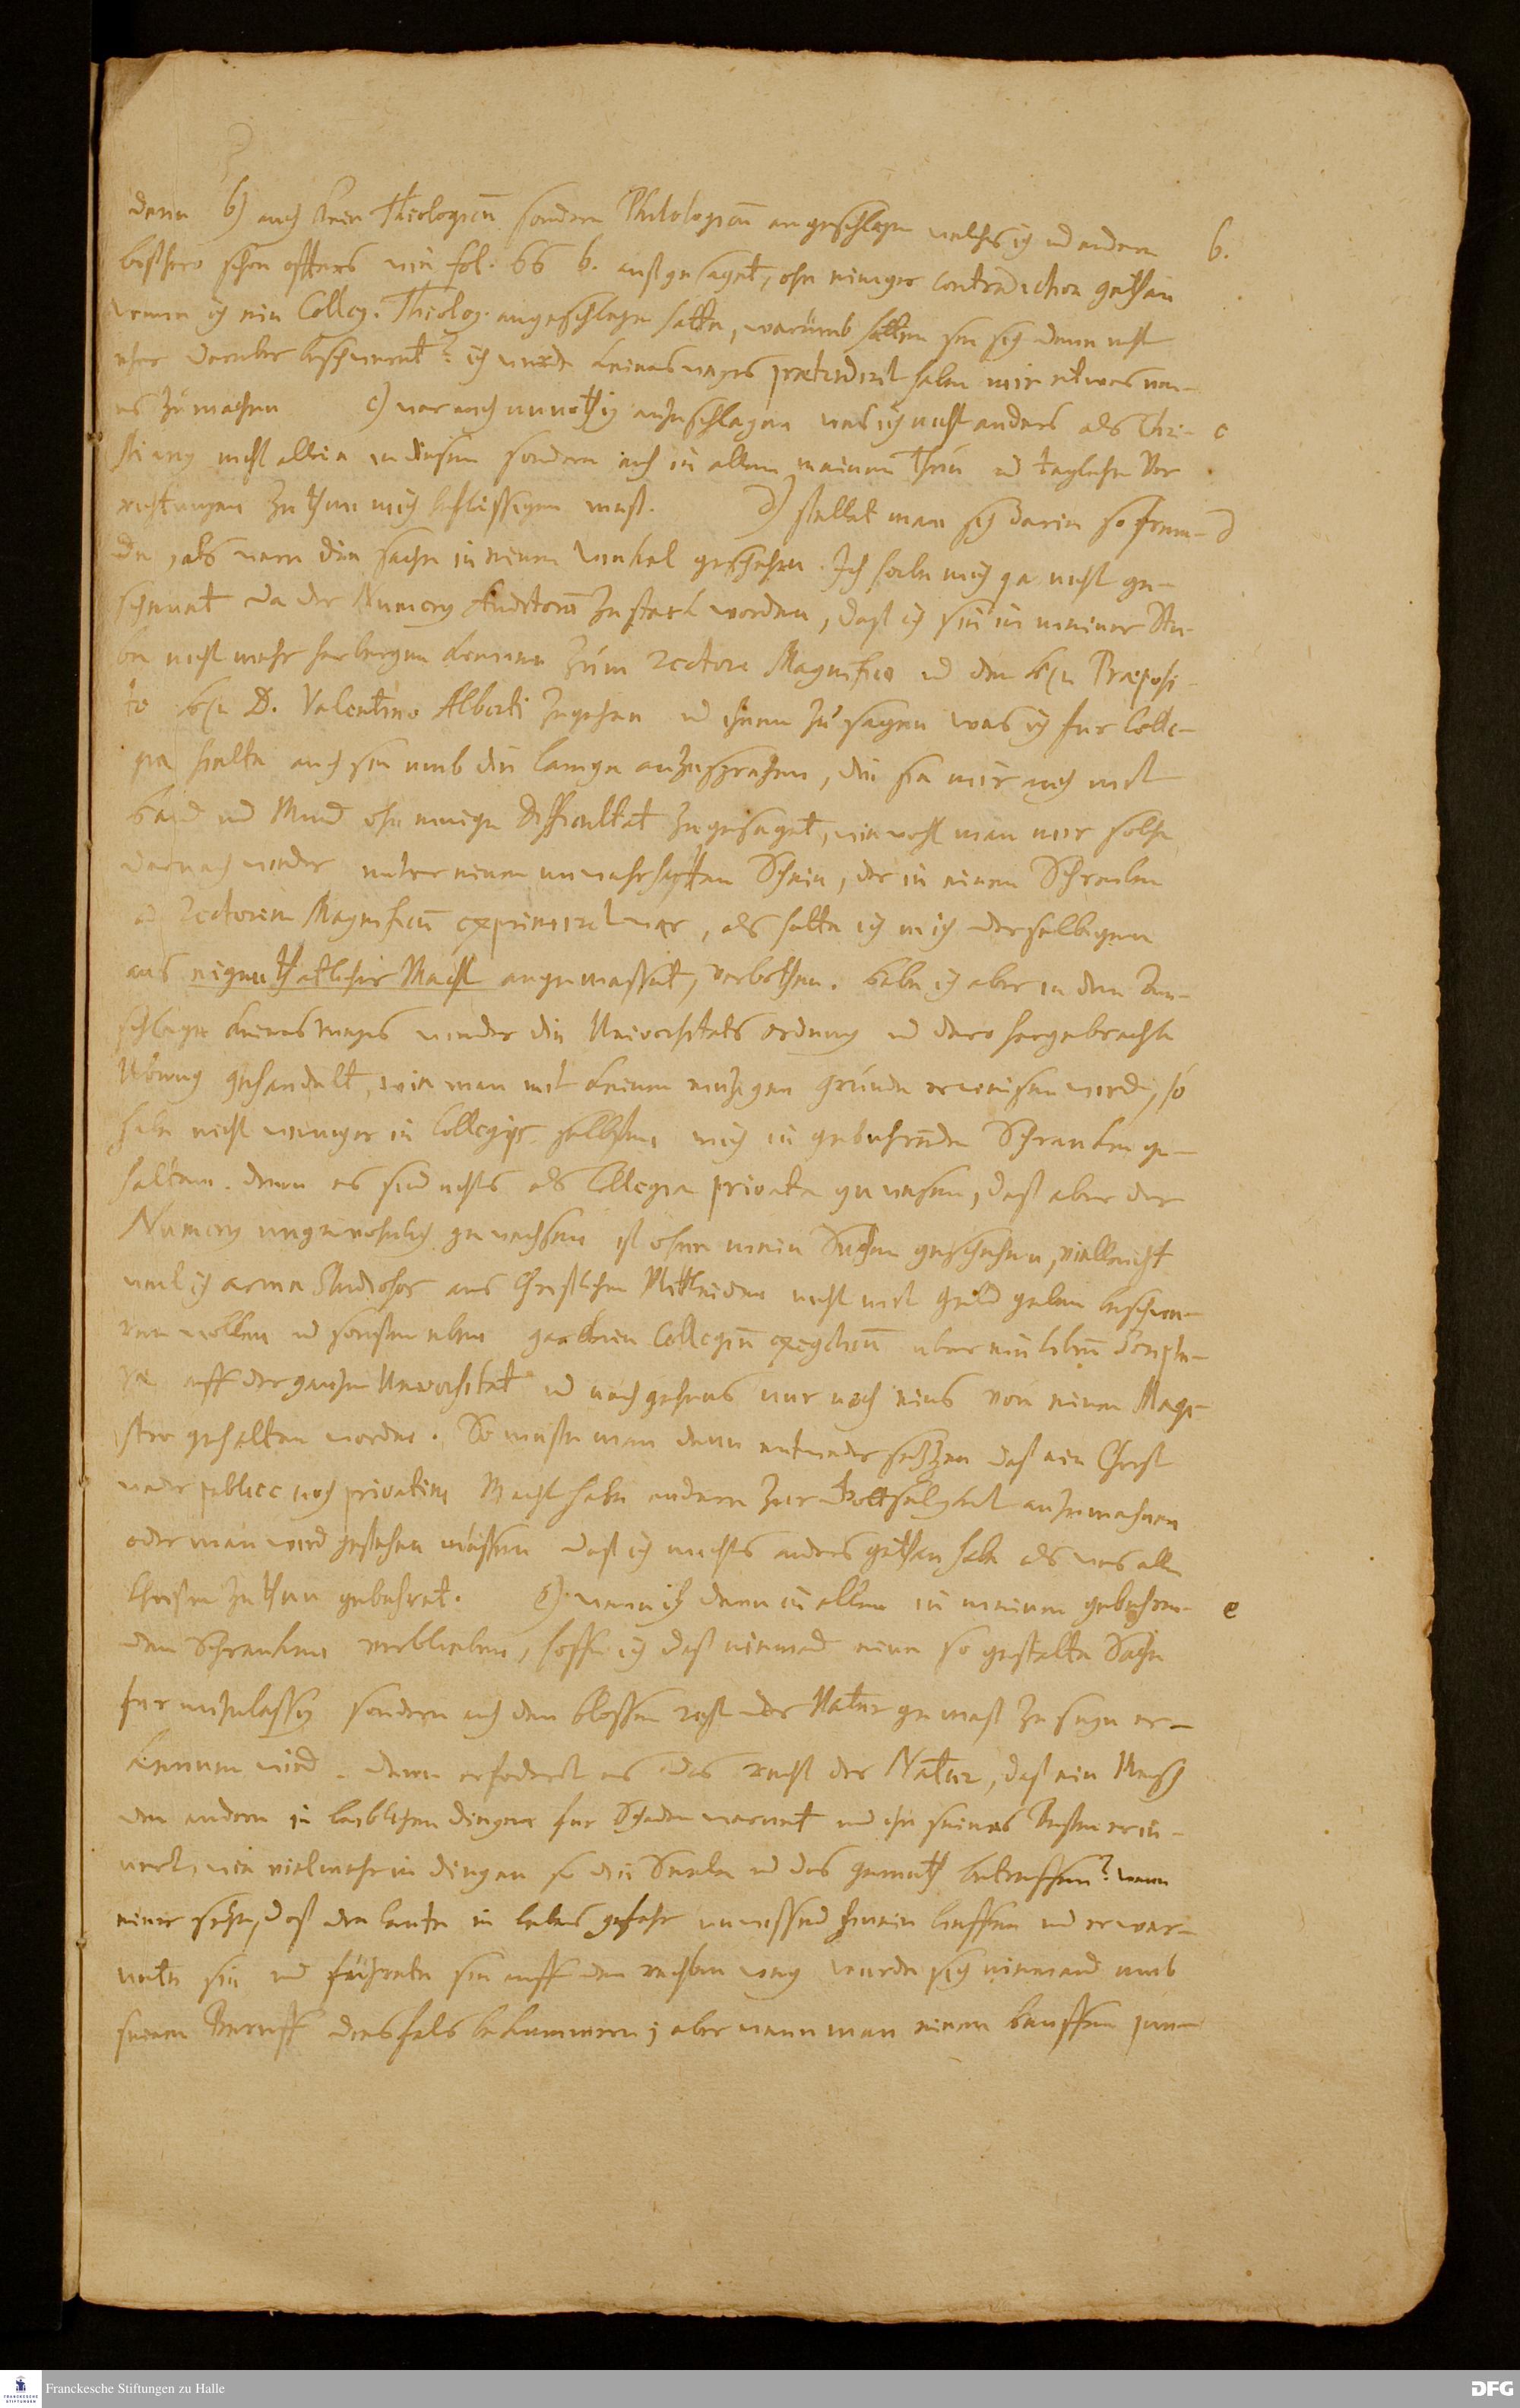 denn b) auch kein Theologicum sondern Philologicum angeschlagen welches ich und andere b.
bißhero schon offters wie fol. 66 b. außgesaget, ohn einiger contradiction gethan
wenn ich ein Colleg. Theolog. angeschlagen hette, warumb hetten sie sich denn nicht
eher daruber beschweret? ich wurde keines weges praetendiret haben mir etwas neu-
es zu machen c) war auch unnothig anzuschlagen was ich nicht anders als Chri- c
stianus nicht allein in diesem sondern auch in allem meinem Thun und taglichen Ver
richtungen zu thun mich befleissigen muß. d) stellet man sich darin so frem- d
de, als were die sache in einem winckel geschehen. Ich habe mich ja nicht ge-
scheuet da der Numerus Auditorum zu starck worden, daß ich sie in meiner Stu-
be nicht mehr herbergen konnen zum Rectore Magnifico und dem H(n Praeposi-
to H(n D. Valentino Alberti zugehen und ihnen zu sagen was ich fur Colle-
gia hielte auch sie umb die lectoria anzusprechen, die sie mir auch mit
Hand und Mund ohn einige Difficultet zugesaget, wiewohl man mir solche
darnach wieder unter einem unwahrhafften Schein, der in einem Schreiben
ad Rectorem Magnificum exprimiret war, als hette ich mich derselbigen
aus eigenthatlicher Macht angemasset, verbothen. Habe ich aber in dem An-
schlage keines weges wieder die Universitets ordnung und dero hergebrachte
Ubung gehandelt, wie man mit keinem einzigen Grunde erweisen wird, so
habe nicht weniger in Collegiis selbsten mich in gebuhrenden Schrancken ge-
halten. denn es sind nichts als Collegia privata gewesen, daß aber der
Numerus ungewohnlich gewachsen ist ohne mein Suchen geschehen, vielleicht
weil ich arme Studiosos aus Christlichen Mittleiden nicht mit Geld geben beschwe-
ren wollen und sonsten eben gar kein Collegium exegeticum uber ein librum Scriptu-
rae auff der gantzen Universitet und nachgehens nur noch eins von einem Magi-
stro gehalten worden. So muste man denn entweder setzen daß ein Christ
weder publice noch privatim Macht habe andere zur Gottseligkeit anzumahnen
oder man wird gestehen mussen daß ich nichts anders gethan habe als was allen
Christen zu thun gebuhret. e) wenn ich denn in allem in meinen gebuhren- e
den Schrancken verblieben, hoffe ich daß niemand eine so gestalte Sache
fur unzulassig sondern auch dem blossen recht der Natur gemaß zu seyn er-
kennen wird. denn erfodert es das recht der Natur, daß ein Mensch
den andern in leiblichen dingen fur Schaden warnet und ihn seines Besten erin-
nert, wie vielmehr in dingen so die Seele und das Gemuth betreffen? wenn
einer sehe, daß die leute in lebens gefahr unwissend hinein lieffen und er war-
nete sie und fuhrete sie auff den rechten weg wurde sich niemand umb
seinen Beruff diesfals bekummern; aber wenn man einen hauffen jun-
Franckesche Stiftungen zu Halle
DFG